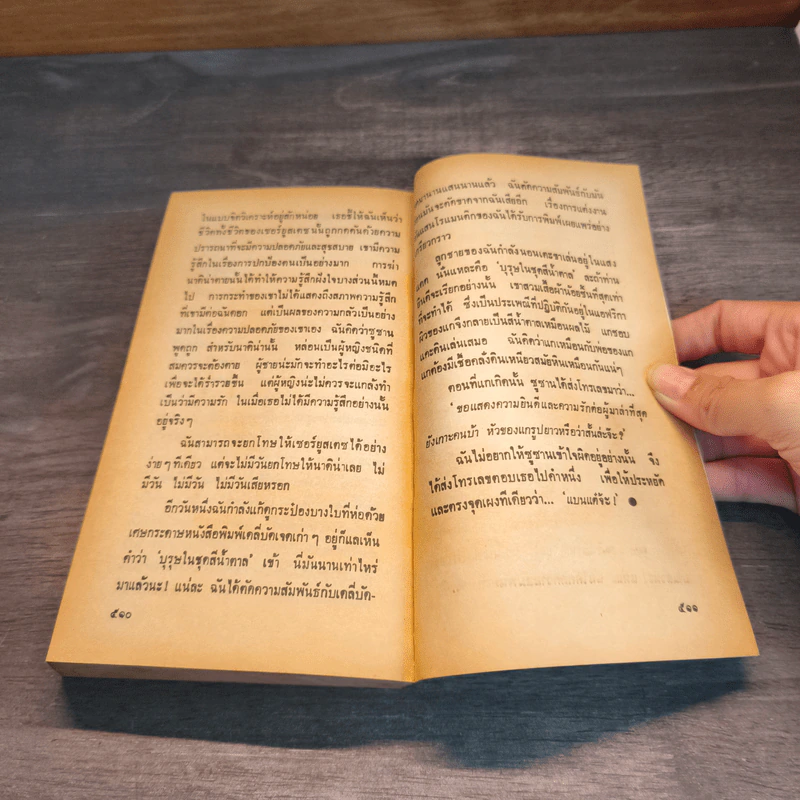 ในแบบจิตวิเคราะห์อยู่สักหน่อย เธอชี้ให้ฉันเห็นว่า
ชีวิตทั้งชีวิตของเซอร์ยูสเตซนั้นถูกกดดันด้วยความ
ปรารถนาที่จะมีความปลอดภัยและสุขสบาย เขามีความ
รู้สึกในเรื่องการปกป้องตนเป็นอย่างมาก การฆ่า
นาดีน่าตายนั้นได้ทำให้ความรู้สึกฝังใจบางส่วนนี้หมด
ไป การกระทำของเขาไม่ได้แสดงถึงสภาพความรู้สึก
ที่เขามีต่อฉันดอก แต่เป็นผลของความกลัวเป็นอย่าง
มากในเรื่องความปลอดภัยของเขาเอง ฉันคิดว่าซูซาน
พูดถูก สำหรับนาดีน่านั้น หล่อนเป็นผู้หญิงชนิดที่
สมควรจะต้องตาย ผู้ชายน่ะมักจะทำอะไรต่อมิอะไร
เพื่อจะได้ร่ำรวยขึ้น แต่ผู้หญิงน่ะไม่ควรจะแกล้งทำ
เป็นว่ามีความรัก ในเมื่อเธอไม่ได้มีความรู้สึกอย่างนั้น
อยู่จริงๆ
ฉันสามารถจะยกโทษให้เซอร์ยูสเตซได้อย่าง
ง่ายๆทีเดียว แต่จะไม่มีวันยกโทษให้นาดีน่าเลย ไม่
มีวัน ไม่มีวัน ไม่มีวันเสียหรอก
อีกวันหนึ่งฉันกำลังแก้ดูกระป๋องบางใบที่ห่อด้วย
เศษกระดาษหนังสือพิมพ์เดลี่บัดเจตเก่าๆ อยู่ก็แลเห็น
คำว่า ‘บุรุษในชุดสีน้ำตาล’ เข้า นี่มันนานเท่าไหร่
มาแล้วนะ! แน่ละ ฉันได้ตัดความสัมพันธ์กับเดลี่บัด-
๕๑๐
มานานแสนนานแล้ว ฉันตัดความสัมพันธ์กับมัน
มันจะตัดขาดจากฉันเสียอีก เรื่องการแต่งงาน
แสนโรแมนติกของฉันได้รับการพิมพ์เผยแพร่อย่าง
เกรียวกราว
ลูกชายของฉันกำลังนอนเตะขาเล่นอยู่ในแสง
แดด นั่นแหละคือ ‘บุรุษในชุดสีน้ำตาล’ ละถ้าท่าน
ยินดีจะเรียกอย่างนั้น เขาสวมเสื้อผ้าน้อยชิ้นที่สุดเท่า
ที่จะทำได้ ซึ่งเป็นประเพณีที่ปฏิบัติกันอยู่ในแอฟริกา
ผิวของแกจึงกลายเป็นสีน้ำตาลเหมือนผลไม้ แกชอบ
แคะดินเล่นเสมอ ฉันคิดว่าแกเหมือนกับพ่อของแก
แกต้องมีเชื้อคลั่งดินเหนียวสมัยหินเหมือนกันแน่ๆ
ตอนที่แกเกิดนั้น ซูซานได้ส่งโทรเลขมาว่า...
‘ขอแสดงความยินดีและความรักต่อผู้มาล่าที่สุด
ยังเกาะคนบ้า หัวของแกรูปยาวหรือว่าสั้นล่ะจ๊ะ?’
ฉันไม่อยากให้ซูซานเข้าใจผิดอยู่อย่างนั้น จึง
ได้ส่งโทรเลขตอบเธอไปคำหนึ่ง เพื่อให้ประหยัด
และตรงจุดเผงทีเดียวว่า... ‘แบนแต้จ้ะ!’ ●
๕๑๑